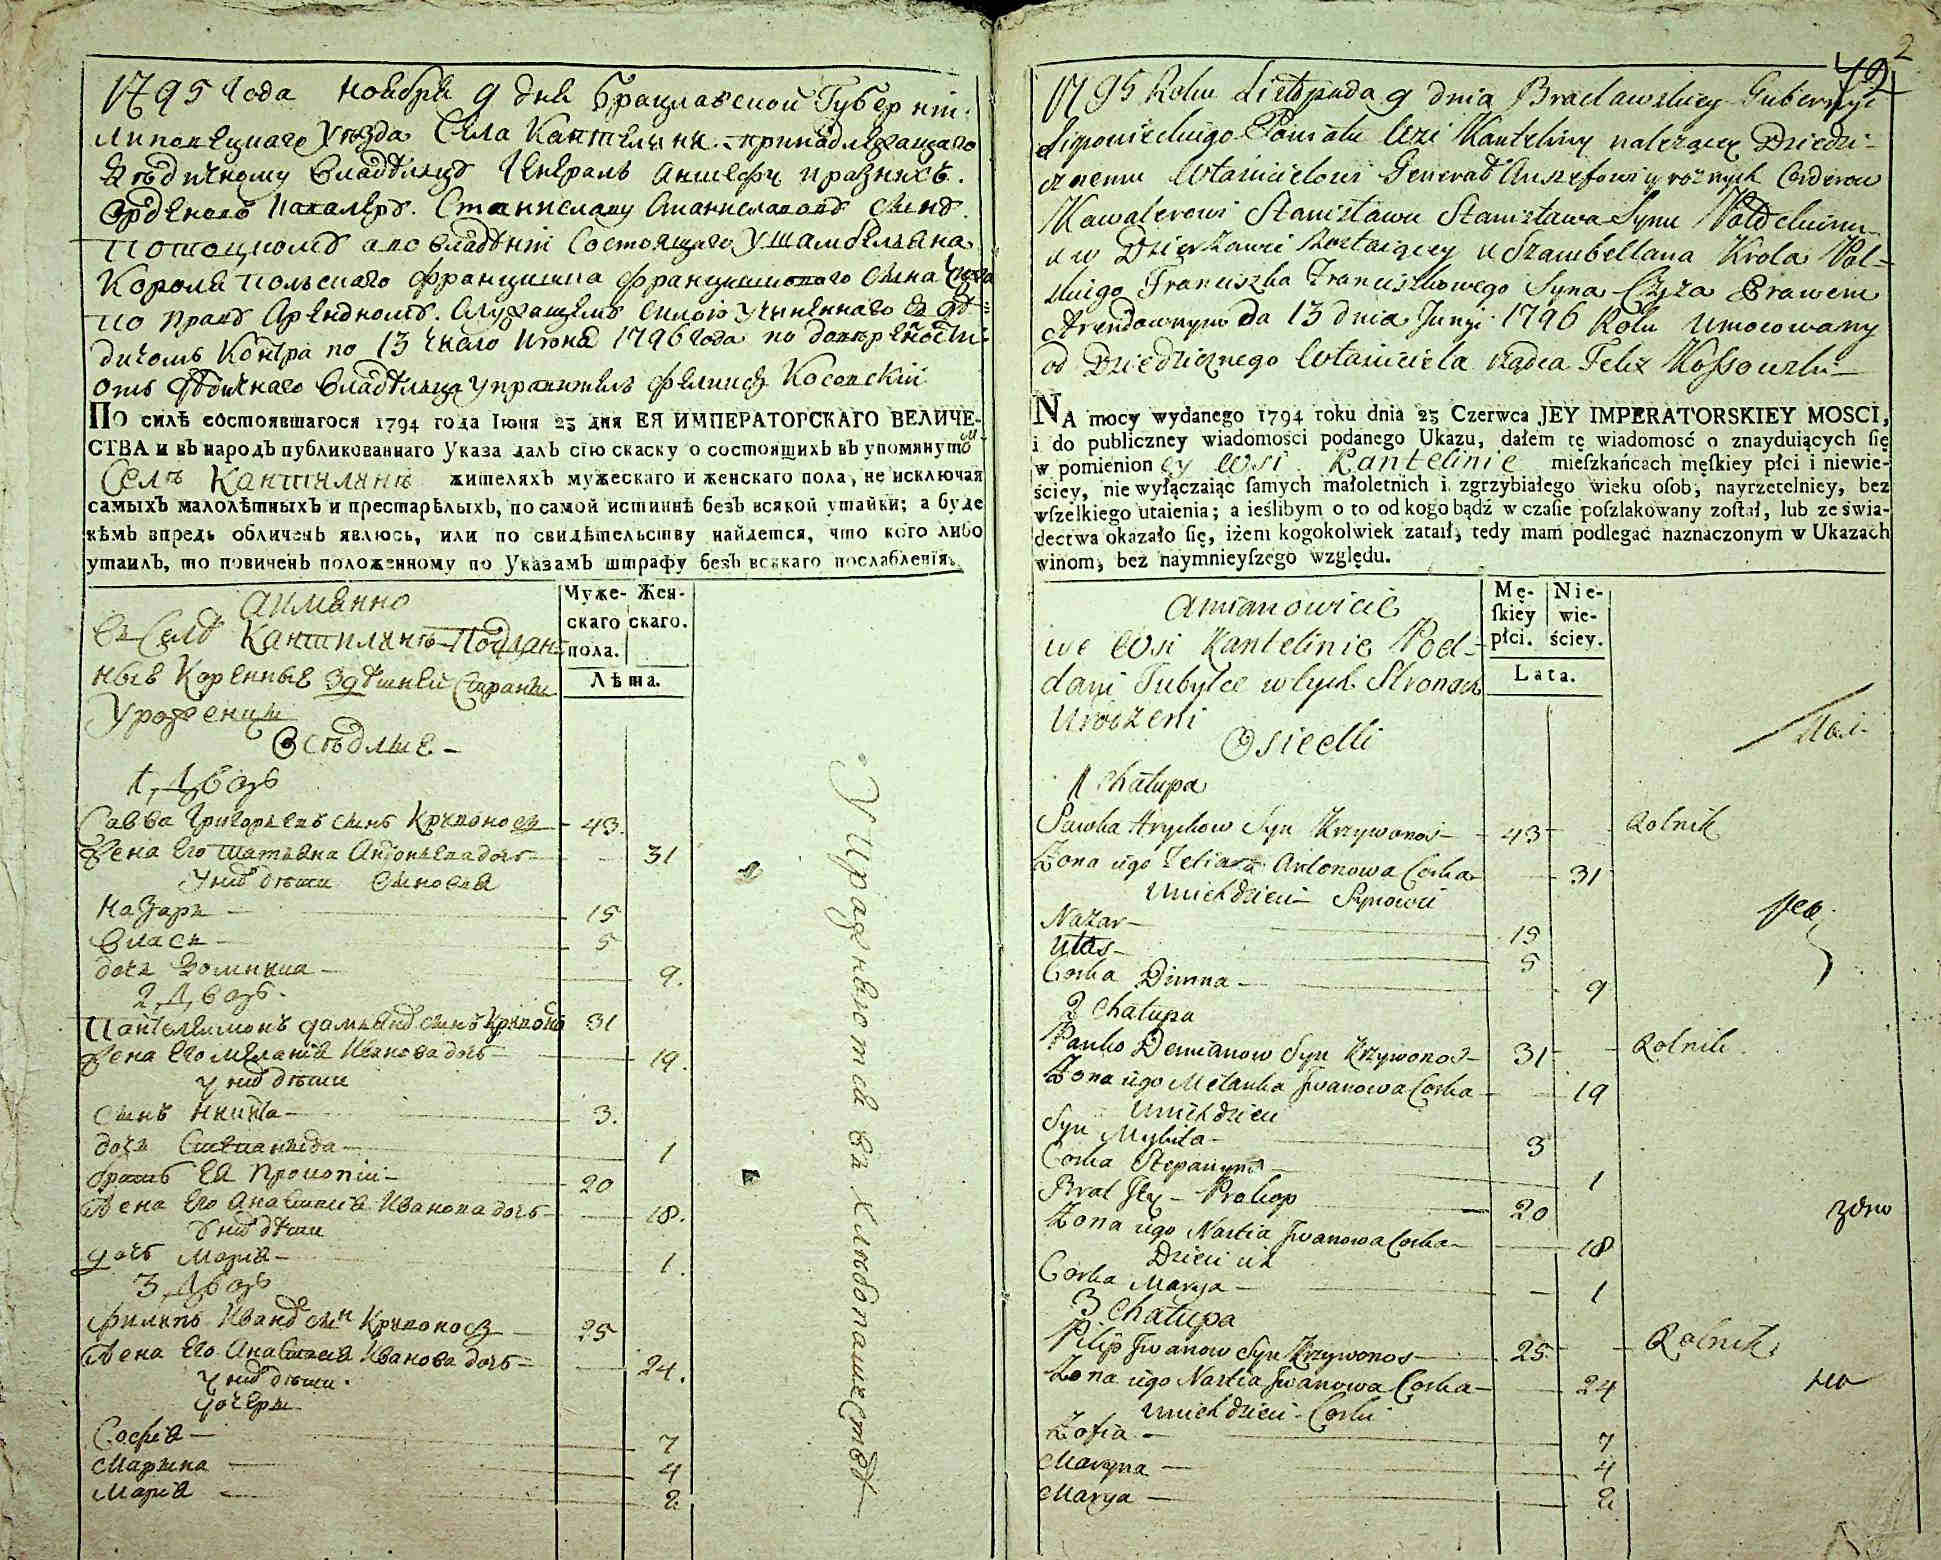 1795 Года Ноября 9 дня Брацлавской Губерніи
Липовецкаго Уезда Села Кантелины принадлежащаго
владелцу Генералъ Аншефу и разныхъ
Орденовъ Кавалеру Станиславу Станиславову сыну
Потоцкому а во владеніи Состоящаго у шамбеляна
Короля польскаго Францишка Францишкового сына
по праву Арендному
Контра по 13 число Июня 1796 года по доверености
отъ владелца управитель Феликсъ Косовскій
ПО силѣ состоявшагося 1794 года Іюня 23 дня ЕЯ ИМПЕРАТОРСКАГО ВЕЛИЧЕ-
СТВА и въ народъ публикованнаго Указа далъ сію скаску о состоящихъ въ упомянутой
Селѣ Кантилинѣ жителяхъ мужескаго и женскаго пола, не исключая
самыхъ малолѣтныхъ и престарѣлыхъ, по самой истиннѣ безъ всякой утайки; а буде
кѣмъ впредь обличенъ явлюсь, или по свидѣтельству найдется, что кого либо
утаилъ, то повиненъ положенному по Указамъ штрафу безъ всякаго послабленія.
Муже-
скаго
пола.
Жен-
скаго.
Лѣта.
а имянно
въ Селѣ Кантилинѣ Поддан-
ные Коренные здѣшней Страны
Уроженцы
Оседлые -
1, Дворъ
Савва Григорьевъ сынъ Кривоносъ 43.
Жена Его Татьяна Антоньева дочь 31
У нихъ дети Сыновья
Назаръ 15
Власъ 5
дочь Домникиа 9.
2, Дворъ.
Пантелемонъ сынъ Кривоно 31
Жена Его Меланія Иванова дочь 19.
у нихъ дети
Сынъ Никита 3.
дочь Степанида 1
братъ Ея Прокопій 20
Жена Его Анастасія Иванова дочь 18.
у нихъ дети
дочь Марія 1.
3, Дворъ
Филипъ Ивановъ сынъ Кривоносъ 25
Жена Его Анастасія Иванова дочь 24.
У нихъ дети.
дочери
Софія 7
Марина 4
Марія 2
Упражняются въ хлебопашестве
2
1795 Roku Listopada 9 dnia Bracławskiey Gubernyi
Lipowieckiego Powiatu Wsi Kanteliny należącey Dziedzi-
cznemu Właścicielowi Generał Anszefowi y rożnych Orderow
Kawalerowi Stanisławu Stanisława Synu Potockimu
a w Dzierżawie zostaiącey u Szambellana Krola Pol-
skiego Franciszka Franciszkowego Syna Czyża Prawem
Arendownym Da 13 dnia Junji 1796 Roku Umocowany
od Dziedzicznego Właściciela Rządca Felix Kossowski
NA mocy wydanego 1794 roku dnia 23 Czerwca JEY IMPERATORSKIEY MOSCI,
i do publiczney wiadomości podanego Ukazu, dałem tę wiadomość o znayduiących się
w pomienion ey Wsi Kantelinie mieszkańcach męskiey płci i niewie-
ściey, nie wyłączaiąc samych małoletnich i zgrzybiałego wieku osob, nayrzetelniey, bez
wszelkiego utaienia; a ieślibym o to od kogo bądź w czasie poszlakowany został, lub ze świa-
dectwa okazało się, iżem kogokolwiek zataił, tedy mam podlegać naznaczonym w Ukazach
winom, bez naymnieyszego względu.
Mę-
skiey
płci.
Nie-
wie-
ściey.
Lata.
a mianowicie
we Wsi Kantelinie Pod-
dani Tubylce w tych Stronach
Urodzeni
Osiedli
1 Chałupa
Sawka Hryckow Syn Krzywonos 43 Rolnik
Żona iego Tetiana Antonowa Corka 31
U nich dzieci Synowie
Nazar 15
Ułas 5
Corka Dimna 9
2 Chałupa
Panko Demianow Syn Krzywonos 31 Rolnik.
Żona iego Melanka Iwanowa Corka 19
U nich dzieci
Syn Mykita 3
Corka Stepanyna 1
Brat Jey Prokop 20
Żona iego Nastia Iwanowa Corka 18
Dzieci ich
Corka Marya 1
3 Chałupa
Pilip Iwanow Syn Krzywonos 25 Rolnik
Żona iego Nastia Iwanowa Corka 24
U nich dzieci Corki
Zofia 7
Maryna 4
Marya 2